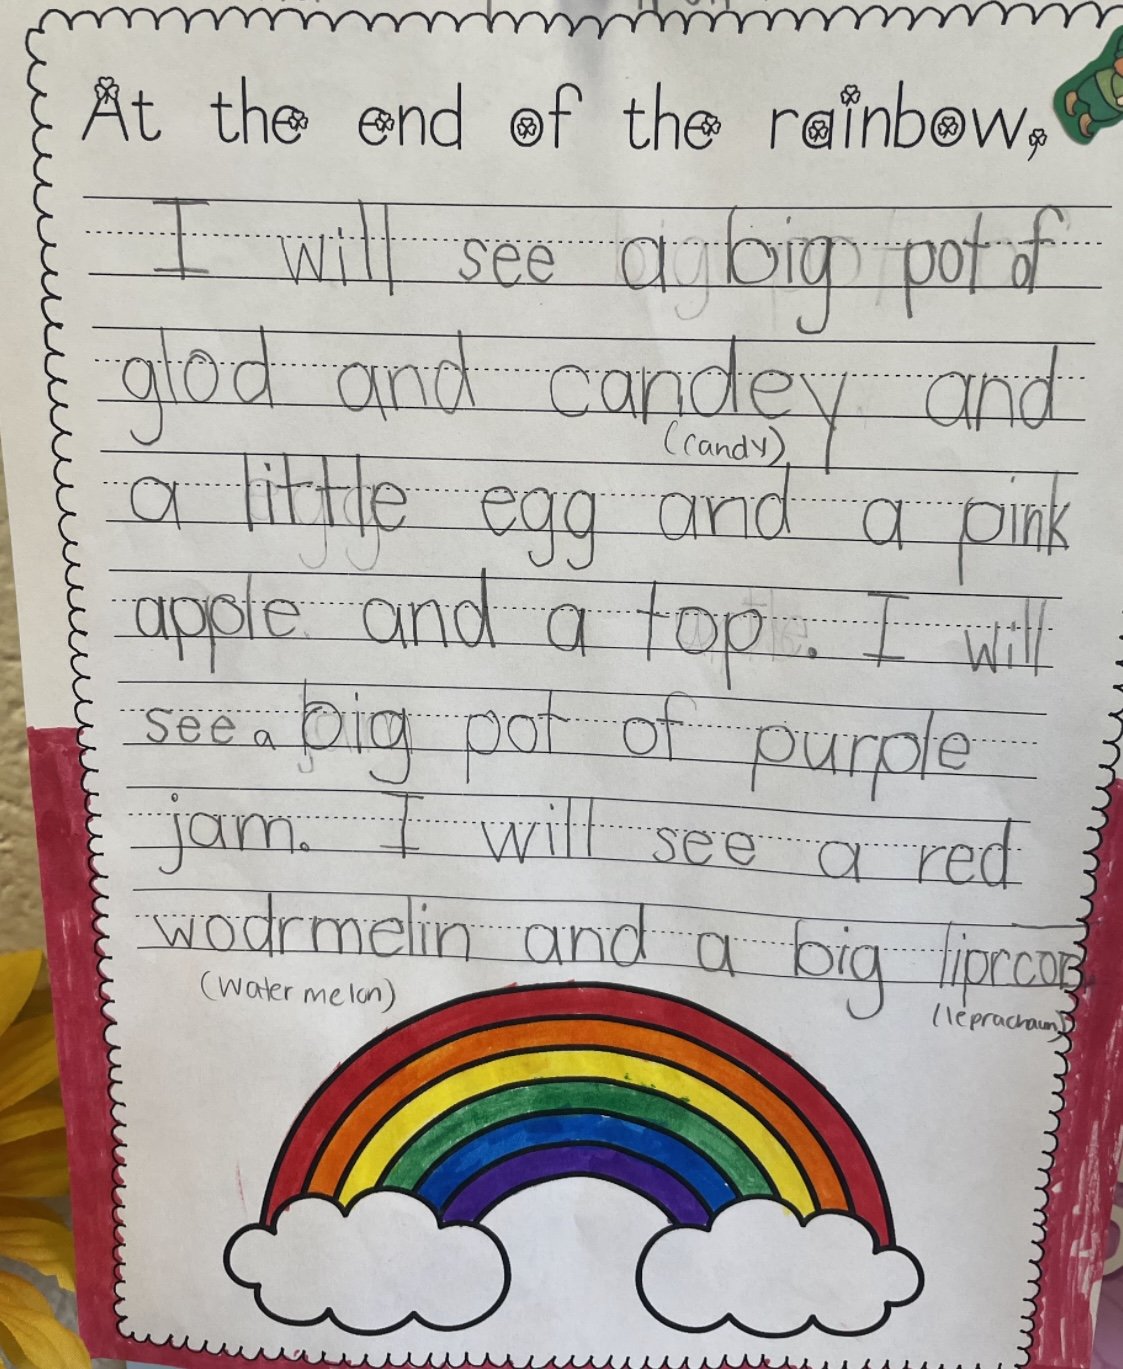 At the end of the rainbow,
I will see a big pot of
glod and candey and
(candy)
a little egg and a pink
apple and a top. I will
see a big pot of purple
jam. I will see a red
wodrmelin and a big liprcon
(water melon)
(leprachaun)